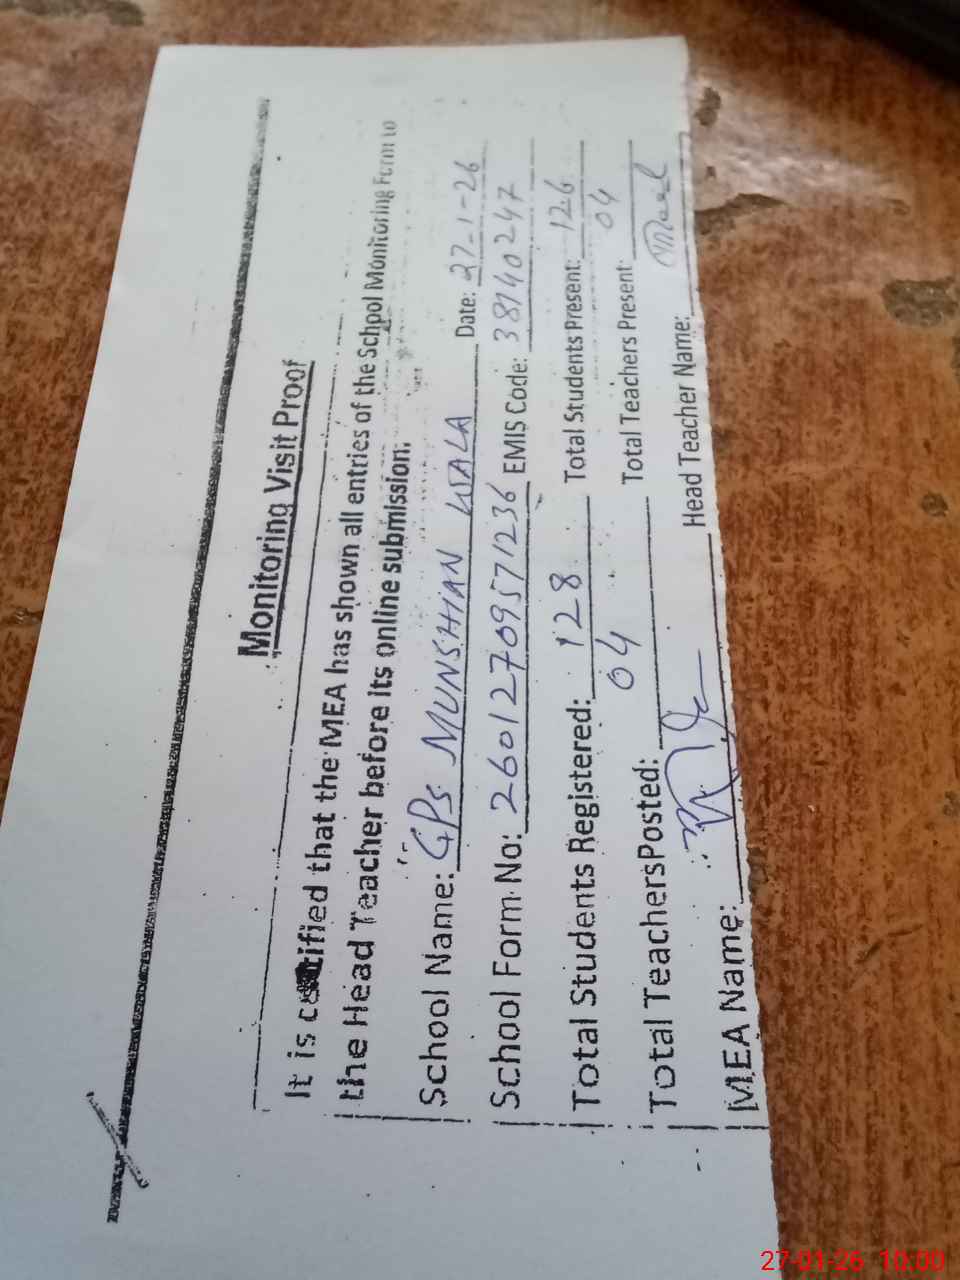 Monitoring Visit Proof
It is certified that the MEA has shown all entries of the School Monitoring Form to
the Head Teacher before its online submission.
School Name: GPS MUNSHIAN WALA Date: 27-1-26
School Form No: 26012709571236 EMIS Code: 38140247
Total Students Registered: 128 Total Students Present: 126
Total Teachers Posted: 04 Total Teachers Present: 04
MEA Name: Head Teacher Name:
27-01-26 10:00